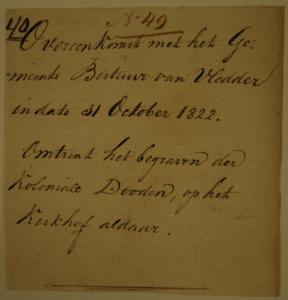 N. 49
40
Overeenkomst met het Ge-
meente Bestuur van Vledder
in dato 31 October 1822.
Omtrent het begraven der
Koloniale Dooden, op het
Kerkhof aldaar.